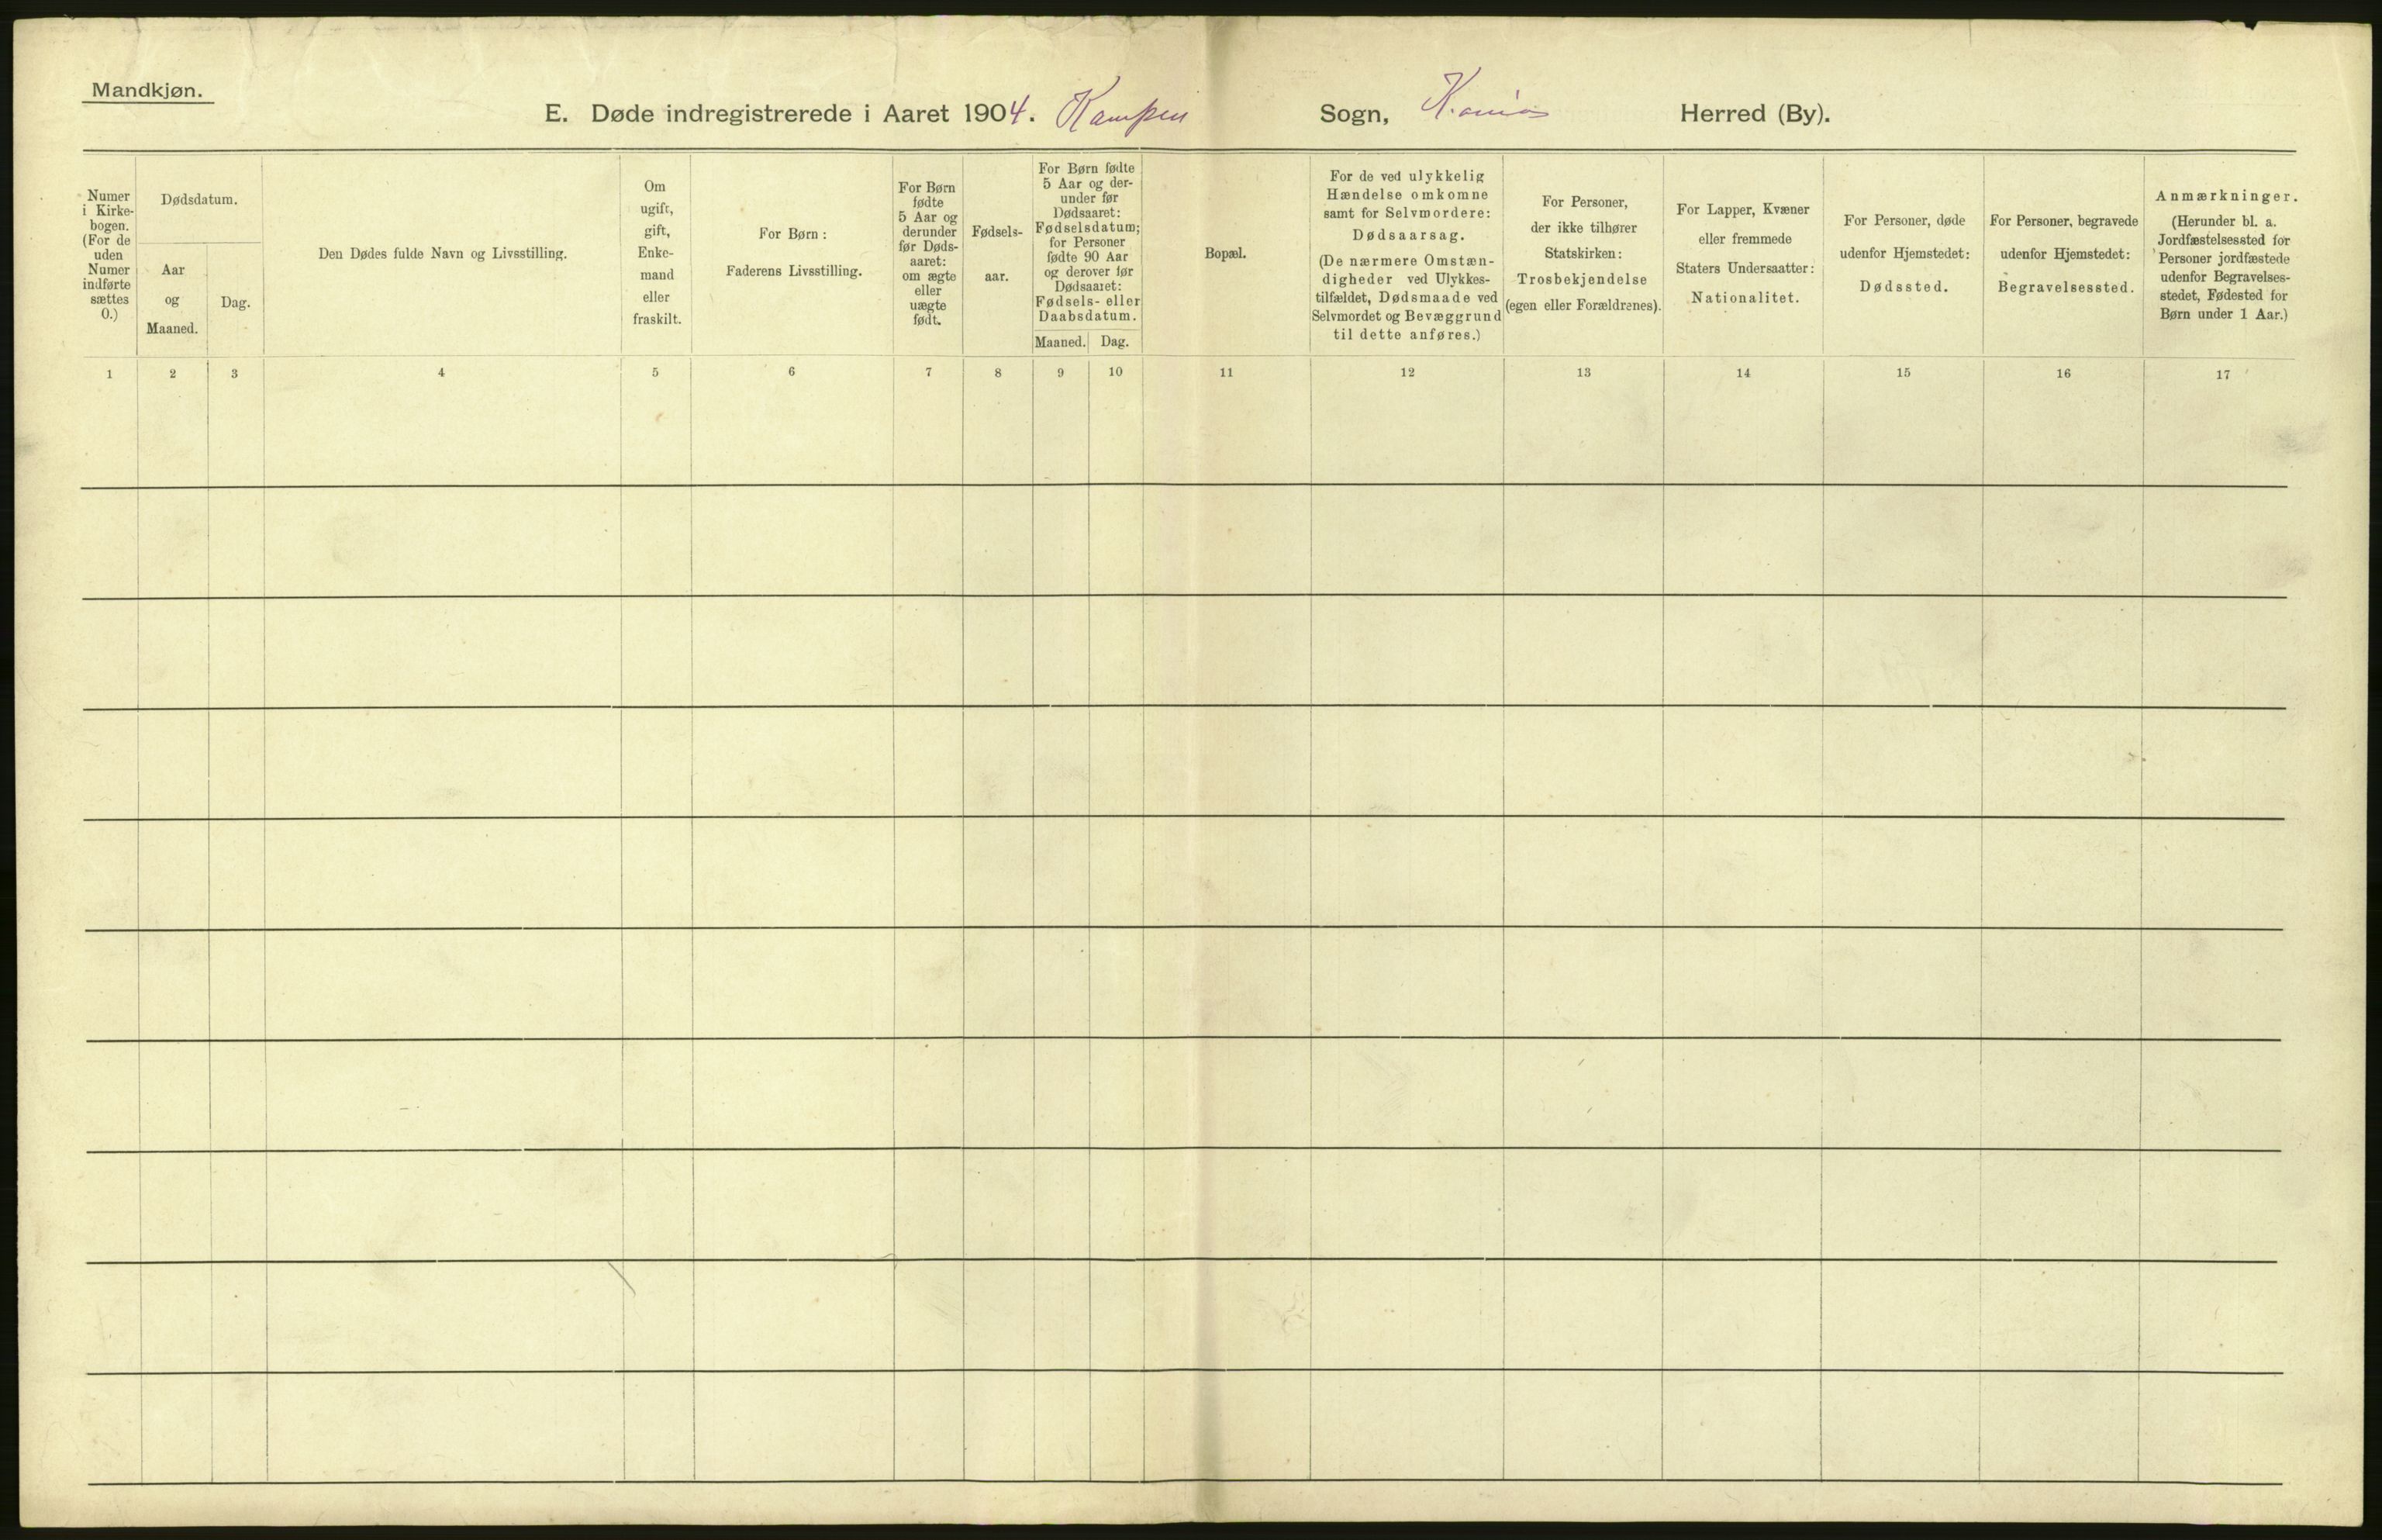 Mandkjøn.
E. Døde indregistrerede i Aaret 1904. Kampen Sogn, Herred (By).
Numer
i Kirke-
bogen.
(For de
uden
Numer
indførte
sættes
0.)
Dødsdatum.
Aar
og
Maaned.
Dag.
Den Dødes fulde Navn og Livsstilling.
Om
ugift,
gift,
Enke-
mand
eller
fraskilt.
For Børn:
Faderens Livsstilling.
For Børn
fødte
5 Aar og
derunder
før Døds-
aaret:
om ægte
eller
uægte
født.
Fødsels-
aar.
For Børn fødte
5 Aar og der-
under før
Dødsaaret:
Fødselsdatum;
for Personer
fødte 90 Aar
og derover før
Dødsaaret:
Fødsels- eller
Daabsdatum.
Maaned. Dag.
Bopæl.
For de ved ulykkelig
Hændelse omkomne
samt for Selvmordere:
Dødsaarsag.
(De nærmere Omstæn-
digheder ved Ulykkes-
tilfældet, Dødsmaade ved
Selvmordet og Bevæggrund
til dette anføres.)
For Personer,
der ikke tilhører
Statskirken:
Trosbekjendelse
(egen eller Forældrenes).
For Lapper, Kvæner
eller fremmede
Staters Undersaatter:
Nationalitet.
For Personer, døde
udenfor Hjemstedet:
Dødssted.
For Personer, begravede
udenfor Hjemstedet:
Begravelsessted.
Anmærkninger.
(Herunder bl. a.
Jordfæstelsessted for
Personer jordfæstede
udenfor Begravelses-
stedet, Fødested for
Børn under 1 Aar.)
1 2 3 4 5 6 7 8 9 10 11 12 13 14 15 16 17